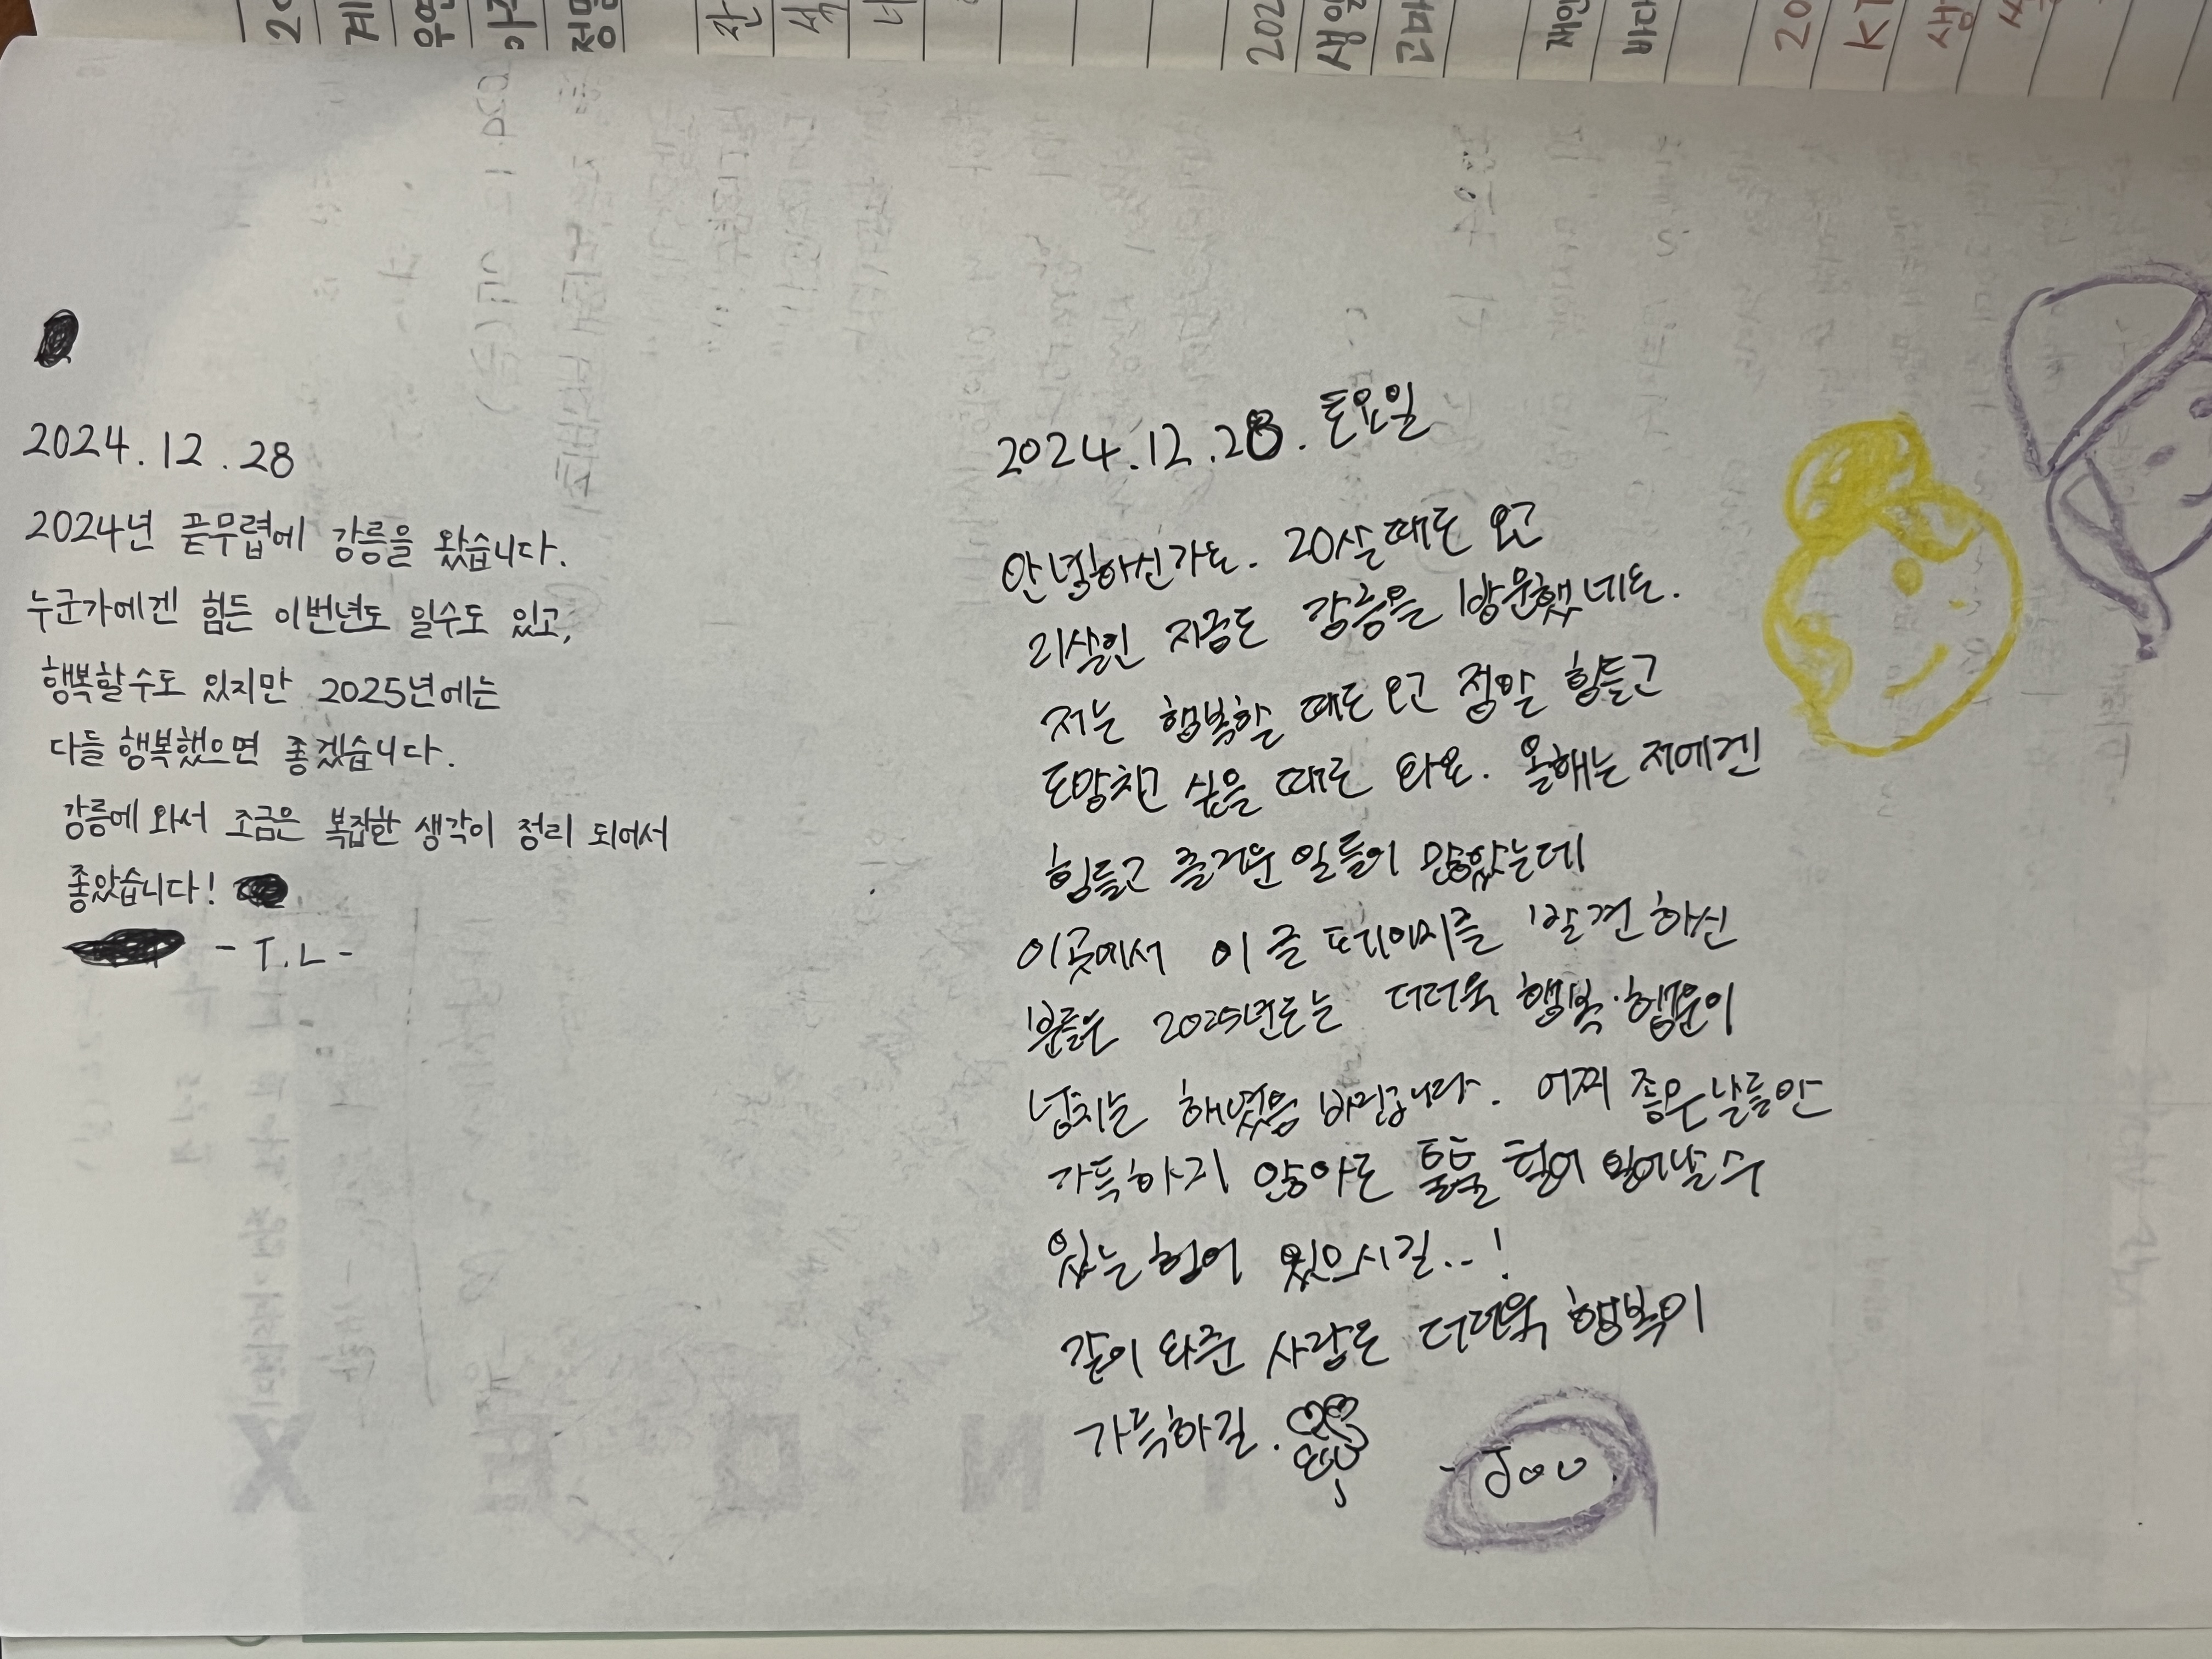 2024.12.28
2024년 끝무렵에 강릉을 왔습니다.
누군가에겐 힘든 이번년도 일수도 있고,
행복할수도 있지만 2025년에는
다들 행복했으면 좋겠습니다.
강릉에 와서 조금은 복잡한 생각이 정리 되어서
좋았습니다!
- T.L -
2024.12.28. 토요일
안녕하신가요. 20살 때도 오고
21살인 지금도 강릉을 방문했네요.
저는 행복할 때도 오고 정말 힘들고
도망치고 싶을 때도 와요. 올해는 저에겐
힘들고 즐거운 일들이 많았는데
이곳에서 이 글 페이지를 발견하신
분들은 2025년도는 더더욱 행복·행운이
넘치는 해였음 바랍니다. 어찌 좋은 날들만
가득하지 않아도 툴툴 털어 일어날 수
있는 힘이 있으시길..!
같이 와준 사람도 더더욱 행복이
가득하길.
- Joo.